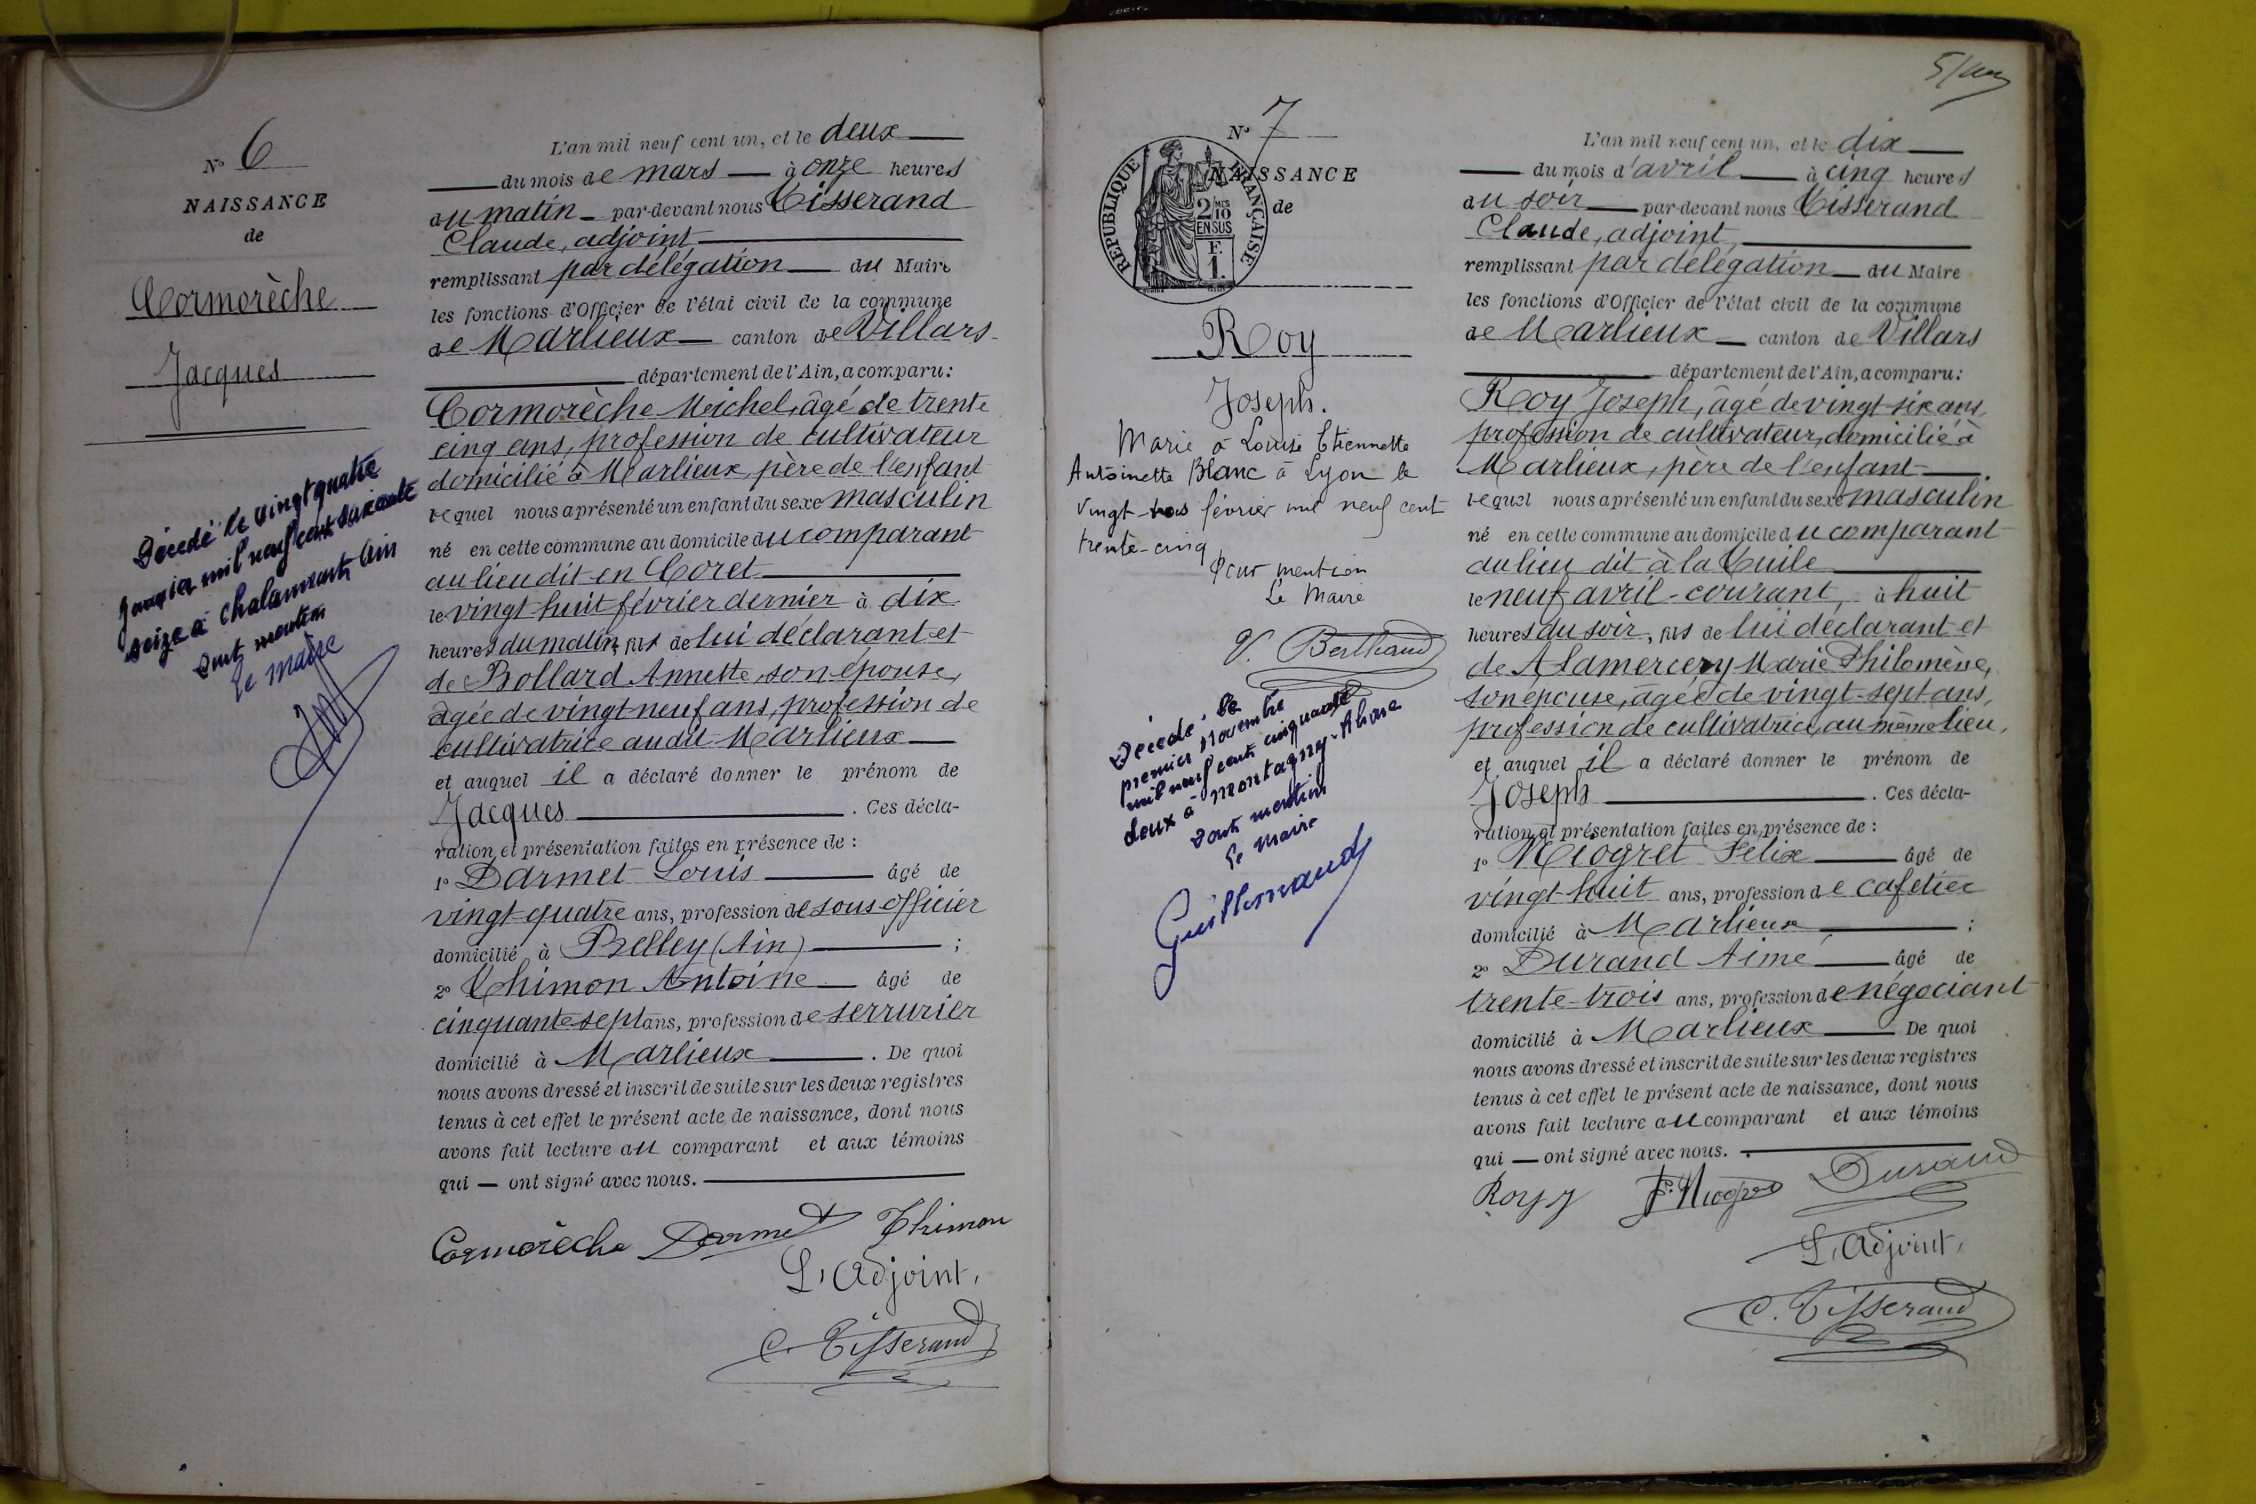 N° 6
NAISSANCE
de
Cormorèche
Jacques
Décédé le vingt quatre
janvier mil neuf cent soixante
seize à Chalamont, Ain
Dont mention
Le Maire
L'an mil neuf cent un, et le deux
du mois de mars à onze heures
du matin par-devant nous Tisserand
Claude, adjoint
remplissant par délégation du Maire
les fonctions d'Officier de l'état civil de la commune
de Marlieux canton de Villars
département de l'Ain, a comparu:
Cormorèche Michel, âgé de trente
cinq ans, profession de cultivateur
domicilié à Marlieux, père de l'enfant
lequel nous a présenté un enfant du sexe masculin
né en cette commune au domicile du comparant
au lieu dit en Coret
le vingt huit février dernier à dix
heures du matin, fils de lui déclarant et
de Bollard Annette, son épouse,
âgée de vingt neuf ans, profession de
cultivatrice audit Marlieux
et auquel il a déclaré donner le prénom de
Jacques . Ces décla-
ration et présentation faites en présence de :
1° Darmet Louis âgé de
vingt-quatre ans, profession de sous officier
domicilié à Belley (Ain) ;
2° Thimon Antoine âgé de
cinquante-sept ans, profession de serrurier
domicilié à Marlieux . De quoi
nous avons dressé et inscrit de suite sur les deux registres
tenus à cet effet le présent acte de naissance, dont nous
avons fait lecture au comparant et aux témoins
qui — ont signé avec nous.
Cormorèche Darmet Thimon
L'Adjoint,
C. Tisserand
5/
N° 7
NAISSANCE
de
REPUBLIQUE FRANÇAISE
2/10
EN SUS
F.
1.
Roy
Joseph.
Marié à Louise Etiennette
Antoinette Blanc à Lyon le
vingt-trois février mil neuf cent
trente-cinq
Pour mention
Le Maire
V. Berthaud
Décédé le
premier Novembre
mil neuf cent cinquante
deux à Montagny-Rhône
Dont mention
Le Maire
Guillemaud
L'an mil neuf cent un, et le dix
du mois d'avril à cinq heures
du soir par-devant nous Tisserand
Claude, adjoint,
remplissant par délégation du Maire
les fonctions d'Officier de l'état civil de la commune
de Marlieux canton de Villars
département de l'Ain, a comparu:
Roy Joseph, âgé de vingt-six ans,
profession de cultivateur, domicilié à
Marlieux, père de l'enfant
lequel nous a présenté un enfant du sexe masculin
né en cette commune au domicile du comparant
au lieu dit à la Tuile
le neuf avril-courant, à huit
heures du soir, fils de lui déclarant et
de Alamercery Marie Philomène,
son épouse, âgée de vingt-sept ans,
profession de cultivatrice, au même lieu,
et auquel il a déclaré donner le prénom de
Joseph . Ces décla-
ration et présentation faites en présence de :
1° Niogret Félix âgé de
vingt-huit ans, profession de cafetier
domicilié à Marlieux ;
2° Durand Aimé âgé de
trente-trois ans, profession de négociant
domicilié à Marlieux De quoi
nous avons dressé et inscrit de suite sur les deux registres
tenus à cet effet le présent acte de naissance, dont nous
avons fait lecture au comparant et aux témoins
qui — ont signé avec nous.
Roy J F. Niogret Durand
L'Adjoint,
C. Tisserand